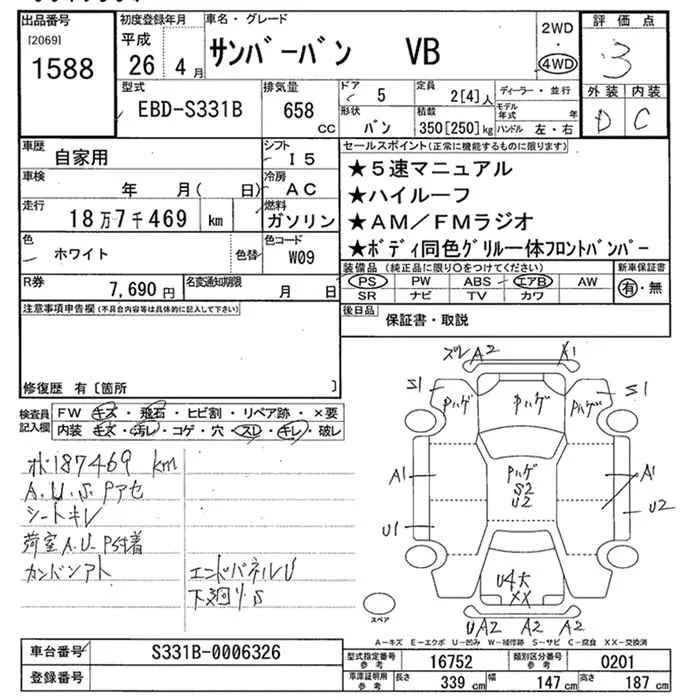 出品番号
[2069]
1588
初度登録年月
平成
26年 4月
車名・グレード
サンバーバン VB
2WD
・
4WD
評価点
3
外装 内装
D C
型式
EBD-S331B
排気量
658 CC
ドア
5
形状
バン
定員
2[4]人
積載
350[250]kg
ディーラー・並行
モデル年式 年
ハンドル 左・右
車歴
自家用
シフト
I5
車検
年 月( 日)
冷房
AC
走行
18万7千469 km
燃料
ガソリン
色
ホワイト
色替
色コード
W09
R券
7,690円
名変通知期限
月 日
セールスポイント(正常に機能するものに限ります)
★5速マニュアル
★ハイルーフ
★AM/FMラジオ
★ボディ同色グリル一体フロントバンパー
装備品(純正品に限り○をつけてください)
PS PW ABS エアB AW
SR ナビ TV カワ
新車保証書
有・無
後日品
保証書・取説
注意事項申告欄(不具合内容等は具体的に記入して下さい)
修復歴 有〔箇所 〕
検査員記入欄
FW キズ・飛石・ヒビ割・リペア跡・×要
内装 キズ・汚レ・コゲ・穴・スレ・キレ・破レ
187469 km
A.U.S Pアセ
シートキレ
荷室A.U-P付着
カンバンアト
エンドパネルU
下廻りS
ズレA2 X1
S1 Pハゲ Pハゲ Pハゲ S1
A1 Pハゲ A1
S2
U2 U2
U1
U4大
XX
UA2 A2 A2
スペア
A-キズ E-エクボ U-凹み W-補修跡 S-サビ C-腐食 XX-交換済
車台番号
S331B-0006326
登録番号
型式指定番号
参考
16752
類別区分番号
参考
0201
車庫証明用
参考
長さ 339 cm 幅 147 cm 高さ 187 cm